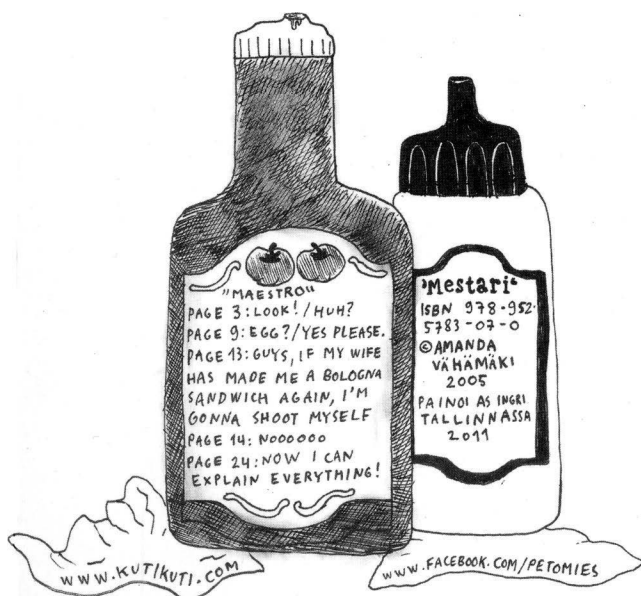 "MAESTRO"
PAGE 3: LOOK! / HUH?
PAGE 9: EGG? / YES PLEASE.
PAGE 13: GUYS, IF MY WIFE
HAS MADE ME A BOLOGNA
SANDWICH AGAIN, I'M
GONNA SHOOT MYSELF
PAGE 14: NOOOOOO
PAGE 24: NOW I CAN
EXPLAIN EVERYTHING!
"Mestari"
ISBN 978-952-
5783-07-0
© AMANDA
VÄHÄMÄKI
2005
PAINOI AS INGRI
TALLINNASSA
2011
WWW.KUTIKUTI.COM
WWW.FACEBOOK.COM/PETOMIES